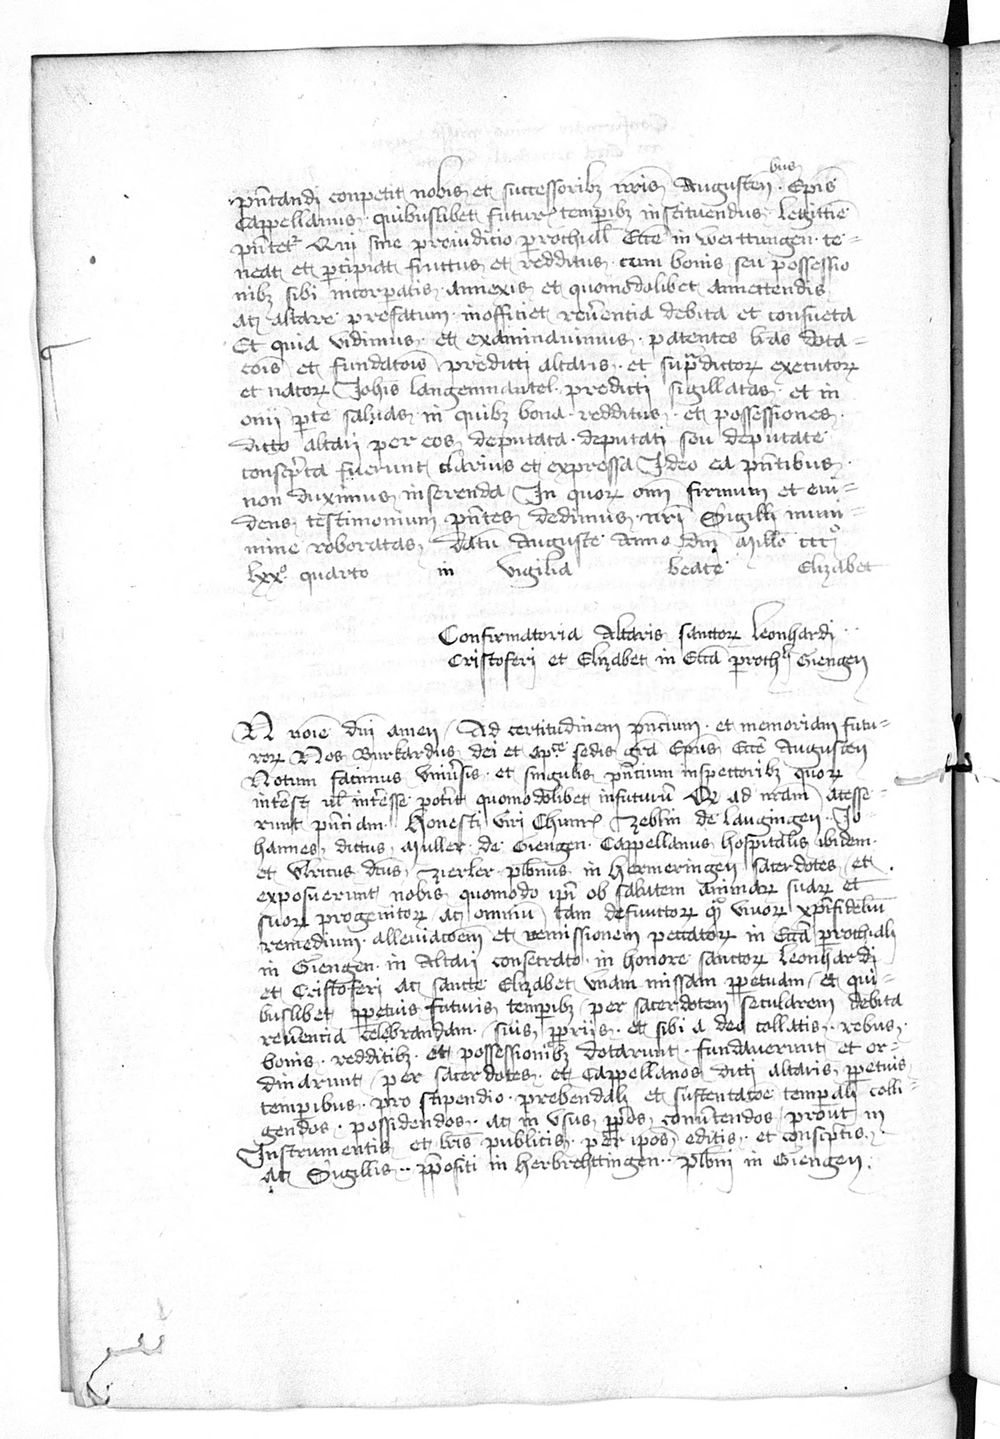 pn̄tandi conpetit nobis et successoribꝫ nr̄is Augusten̄ Ep̄is bus
Cappellanus quibuslibet futur̄ temp̄ibꝫ instituendus legittīe
pn̄tet᷑ Qui sine preiuditio p̱rochial̄ Ecc̄e in Werttungen te-
neat et p̱cipiat fructus et redditus cum bonis seu possessio
nibꝫ sibi incorp̱atis annexis et quomodolibet annectendis
ac altare prefatum inofficiet reu̓entia debita et consueta
Et quia vidimus et examinauimus patentes lr̄as dota-
cōis et fundatōis predicti altaris et sup̱dictoꝝ executoꝝ
et natoꝝ Joh̄is langenmantel predicti sigillatas et in
om̄i p̱te saluas in quibꝫ bona redditus et possessiones
dicto altari per eos deputata deputati seu deputate
consc̓pta fuerunt clarius et expressa Ideo ea pn̄tibus
non duximus inserenda In quoꝝ om̄i firmum et eui-
dens testimonium pn̄tes dedimus nr̄i Sigilli muni-
mine roboratas Datū Auguste Anno dn̄i Mill̄o ccc̊
lxx̊ quarto in vigilia beate Elizabet
Confirmatoria Altaris sanctoꝝ Leonhardi
Cristoferi et Elizabet in Ecc̄a p̱roch̄li Giengen
In noīe dn̄i amen Ad certitudinem pn̄cium et memoriam futu-
roꝝ Nos Burkardus dei et ap̄ce sedis gr̄a Ep̄us Ecc̄e Augusten̄
Notum facimus vniu̓sis et singulis pn̄cium inspectoribꝫ quoꝝ
int̓est ul̄ int̓esse pot̓it quomodolibet infuturū Qꝫ ad nr̄am accesse-
runt pn̄ciam Honesti viri Chunr̄ Zeblin de Laugingen Jo-
hannes dictus Muller de Giengen Cappellanus hospitalis ibidem
et Vlricus dc̄us Zierler pleb̄nus in Hermeringen sacerdotes et
exposuerunt nobis quomodo ip̄i ob salutem animaꝝ suaꝝ et
suoꝝ progenitoꝝ ac omniū tam defunctoꝝ qͣ viuoꝝ xp̄ifideliū
remedium alleuiacōem et remissionem peccatoꝝ in Ecc̄a p̱rochiali
in Giengen in Altari consecrato in honore sanctoꝝ Leonhardi
et Cristoferi ac sancte Elizabet vnam missam p̱petuam et qui-
buslibet p̱petuis futuris temp̱ibꝫ per sacerdotem secularem debita
reu̓entia celebrandam suis p̱priis et sibi a deo collatis rebus
bonis redditibꝫ et possessionibꝫ dotarunt fundauerunt et or-
dinarunt per sacerdotes et Cappellanos dicti altaris p̱petuis
temp̱ibus pro stipendio prebendali et sustentacōe temp̱ali colli-
gendos possidendos ac in vsus p̱p̱os conu̓tendos prout in
Instrumentis et lr̄is publicis per ip̄os editis et consc̓ptis
ac Sigillis p̱p̄ositi in Herbrechttingen pleb̄ni in Giengen